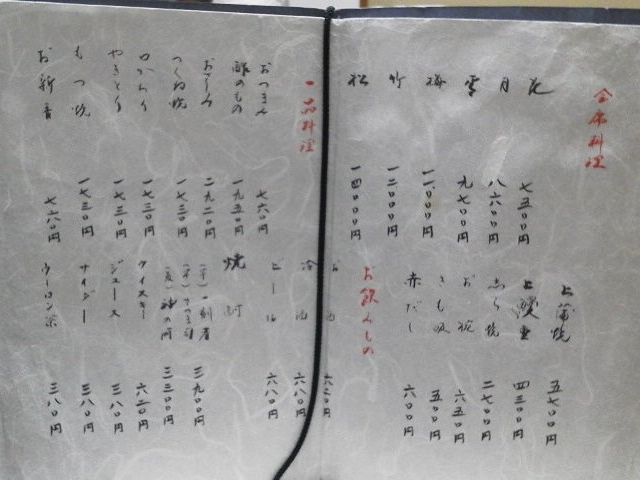 会席料理
花 七五〇〇円
月 八六〇〇円
雪 九七〇〇円
梅 一一、〇〇〇円
竹 一二、〇〇〇円
松 一四〇〇〇円
上蒲焼 五七〇〇円
上鰻重 四三〇〇円
しら焼 二七〇〇円
お椀 六五〇円
きも吸 五〇〇円
赤だし 六〇〇円
お飲みもの
六六〇円
冷酒 六八〇円
ビール 六八〇円
焼酎
(芋) 一刻者 三九〇〇円
三三〇〇円
ウイスキー 六五〇円
ジュース 三八〇円
サイダー 三八〇円
ウーロン茶 三八〇円
一品料理
おつまみ 七六〇円
酢のもの 一九五〇円
二九二〇円
つくね焼 一七三〇円
一七三〇円
やきとり 一七三〇円
もつ焼 一七三〇円
お新香 七六〇円